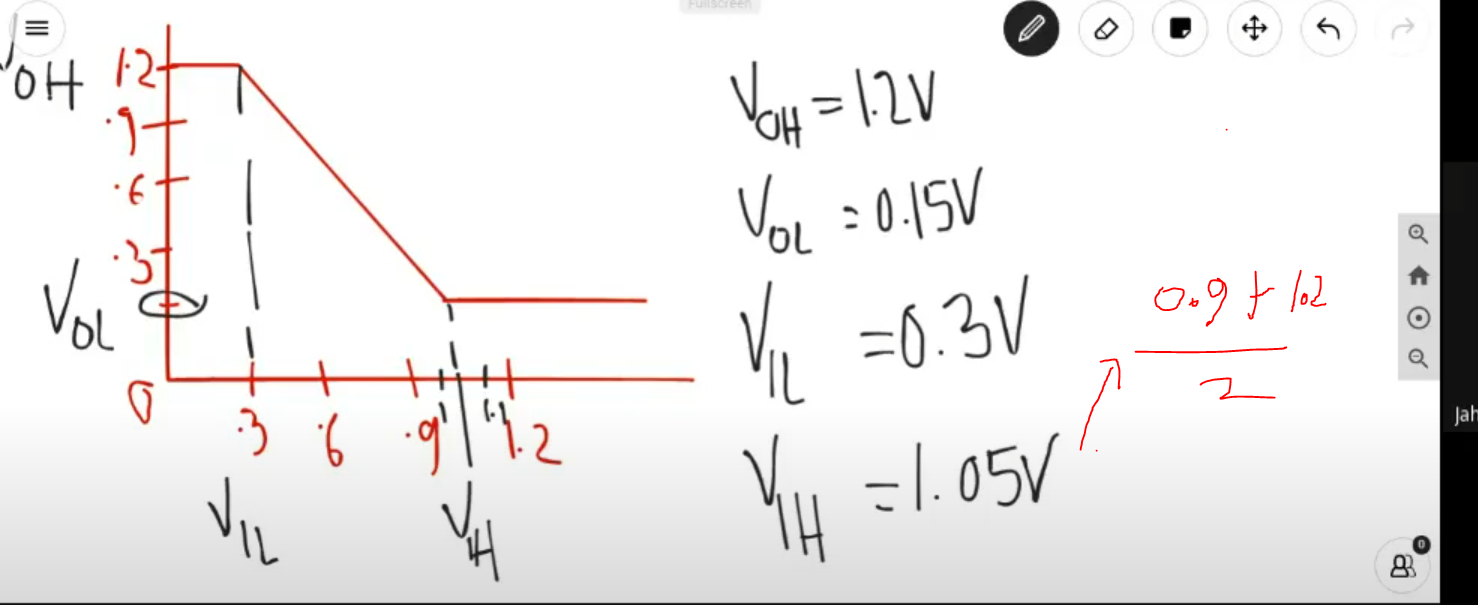 Fullscreen
V_OH
1.2
.9
.6
.3
V_OL
0
.3 .6 .9 1 1.1 1.2
V_IL V_IH
V_OH = 1.2V
V_OL = 0.15V
V_IL = 0.3V
V_IH = 1.05V
0.9 + 1.2
2
0
Jah